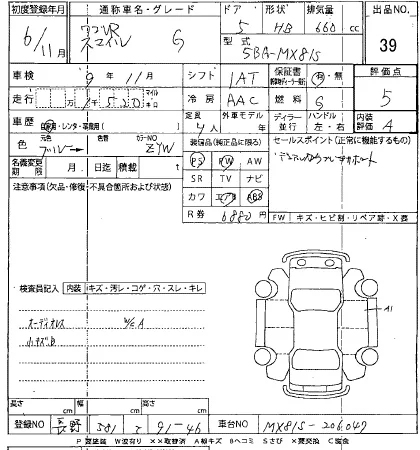 初度登録年月 通称車名・グレード ドア 形状 排気量 出品NO
6/11 G 5 HB 660 cc 39
型式
5BA-MX81S
車検 9年11月 シフト 1AT 保証書 有・無 評価点
走行 マイル キロ 冷房 AAC 燃料 G 5
定員 外車モデル ディーラー ハンドル 内装評価
車歴 自家用・レンタ・事業用( ) 4人 年 並行 左・右 A
色 色替 カラーNO 装備品(純正品に限る) セールスポイント(正常に機能するもの)
ブルー ZYW PS PW AW デュアルカメラブレーキサポート
名義変更期限 月 日迄 積載 t SR TV ナビ
注意事項(欠品・修復・不具合箇所および状態) カワ エアB ABS
R券 6880円 FW キズ・ヒビ割・リペア跡・X要
検査員記入 内装 キズ・汚レ・コゲ・穴・スレ・キレ
A1
オーディオレス A
小キズB
長さ cm 幅 cm 高さ cm
登録NO 長野 581 91-46 車台NO MX81S-206047
P要塗装 W波有り XX取替済 A線キズ Bヘコミ Sさび X要交換 C腐食